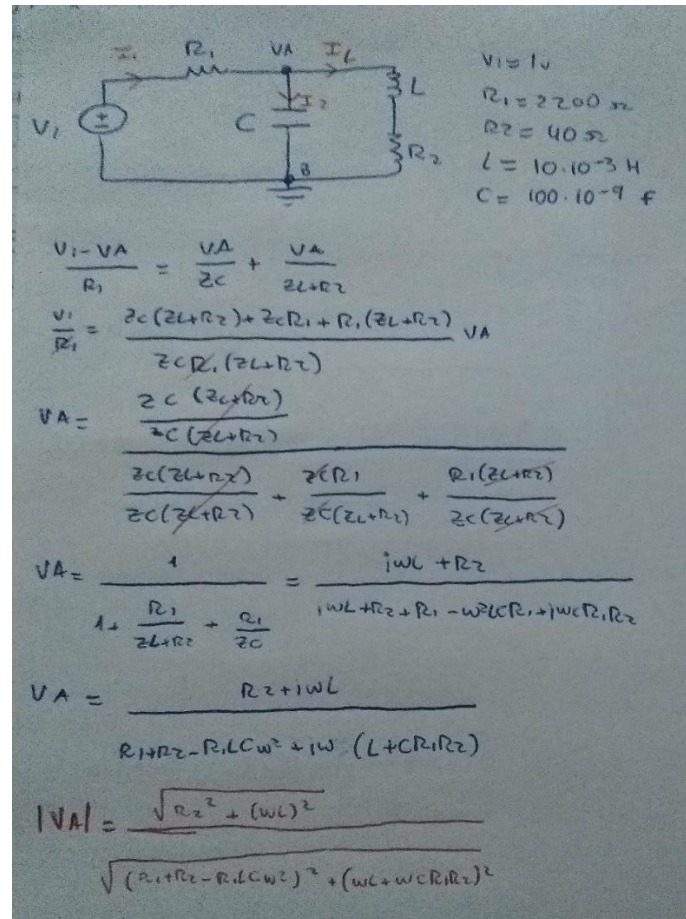 I1 R1 VA IL
V1 ± C I2 L R2 B
V1 = 1v
R1 = 2200 Ω
R2 = 40 Ω
L = 10.10-3 H
C = 100.10-9 F
V1-VA / R1 = VA / ZC + VA / ZL+R2
V1 / R1 = ZC(ZL+R2)+ZCR1+R1(ZL+R2) / ZCR1(ZL+R2) VA
VA = ZC(ZL+R2) / ZC(ZL+R2) / ZC(ZL+R2) / ZC(ZL+R2) + ZCR1 / ZC(ZL+R2) + R1(ZL+R2) / ZC(ZL+R2)
VA = 1 / 1+ R1 / ZL+R2 + R1 / ZC = iWL+R2 / iWL+R2+R1-W²LCR1+iWCR1R2
VA = R2+iWL / R1+R2-R1LCW²+iW (L+CR1R2)
|VA| = √R2²+(WL)² / √(R1+R2-R1LCW²)²+(WL+WCR1R2)²